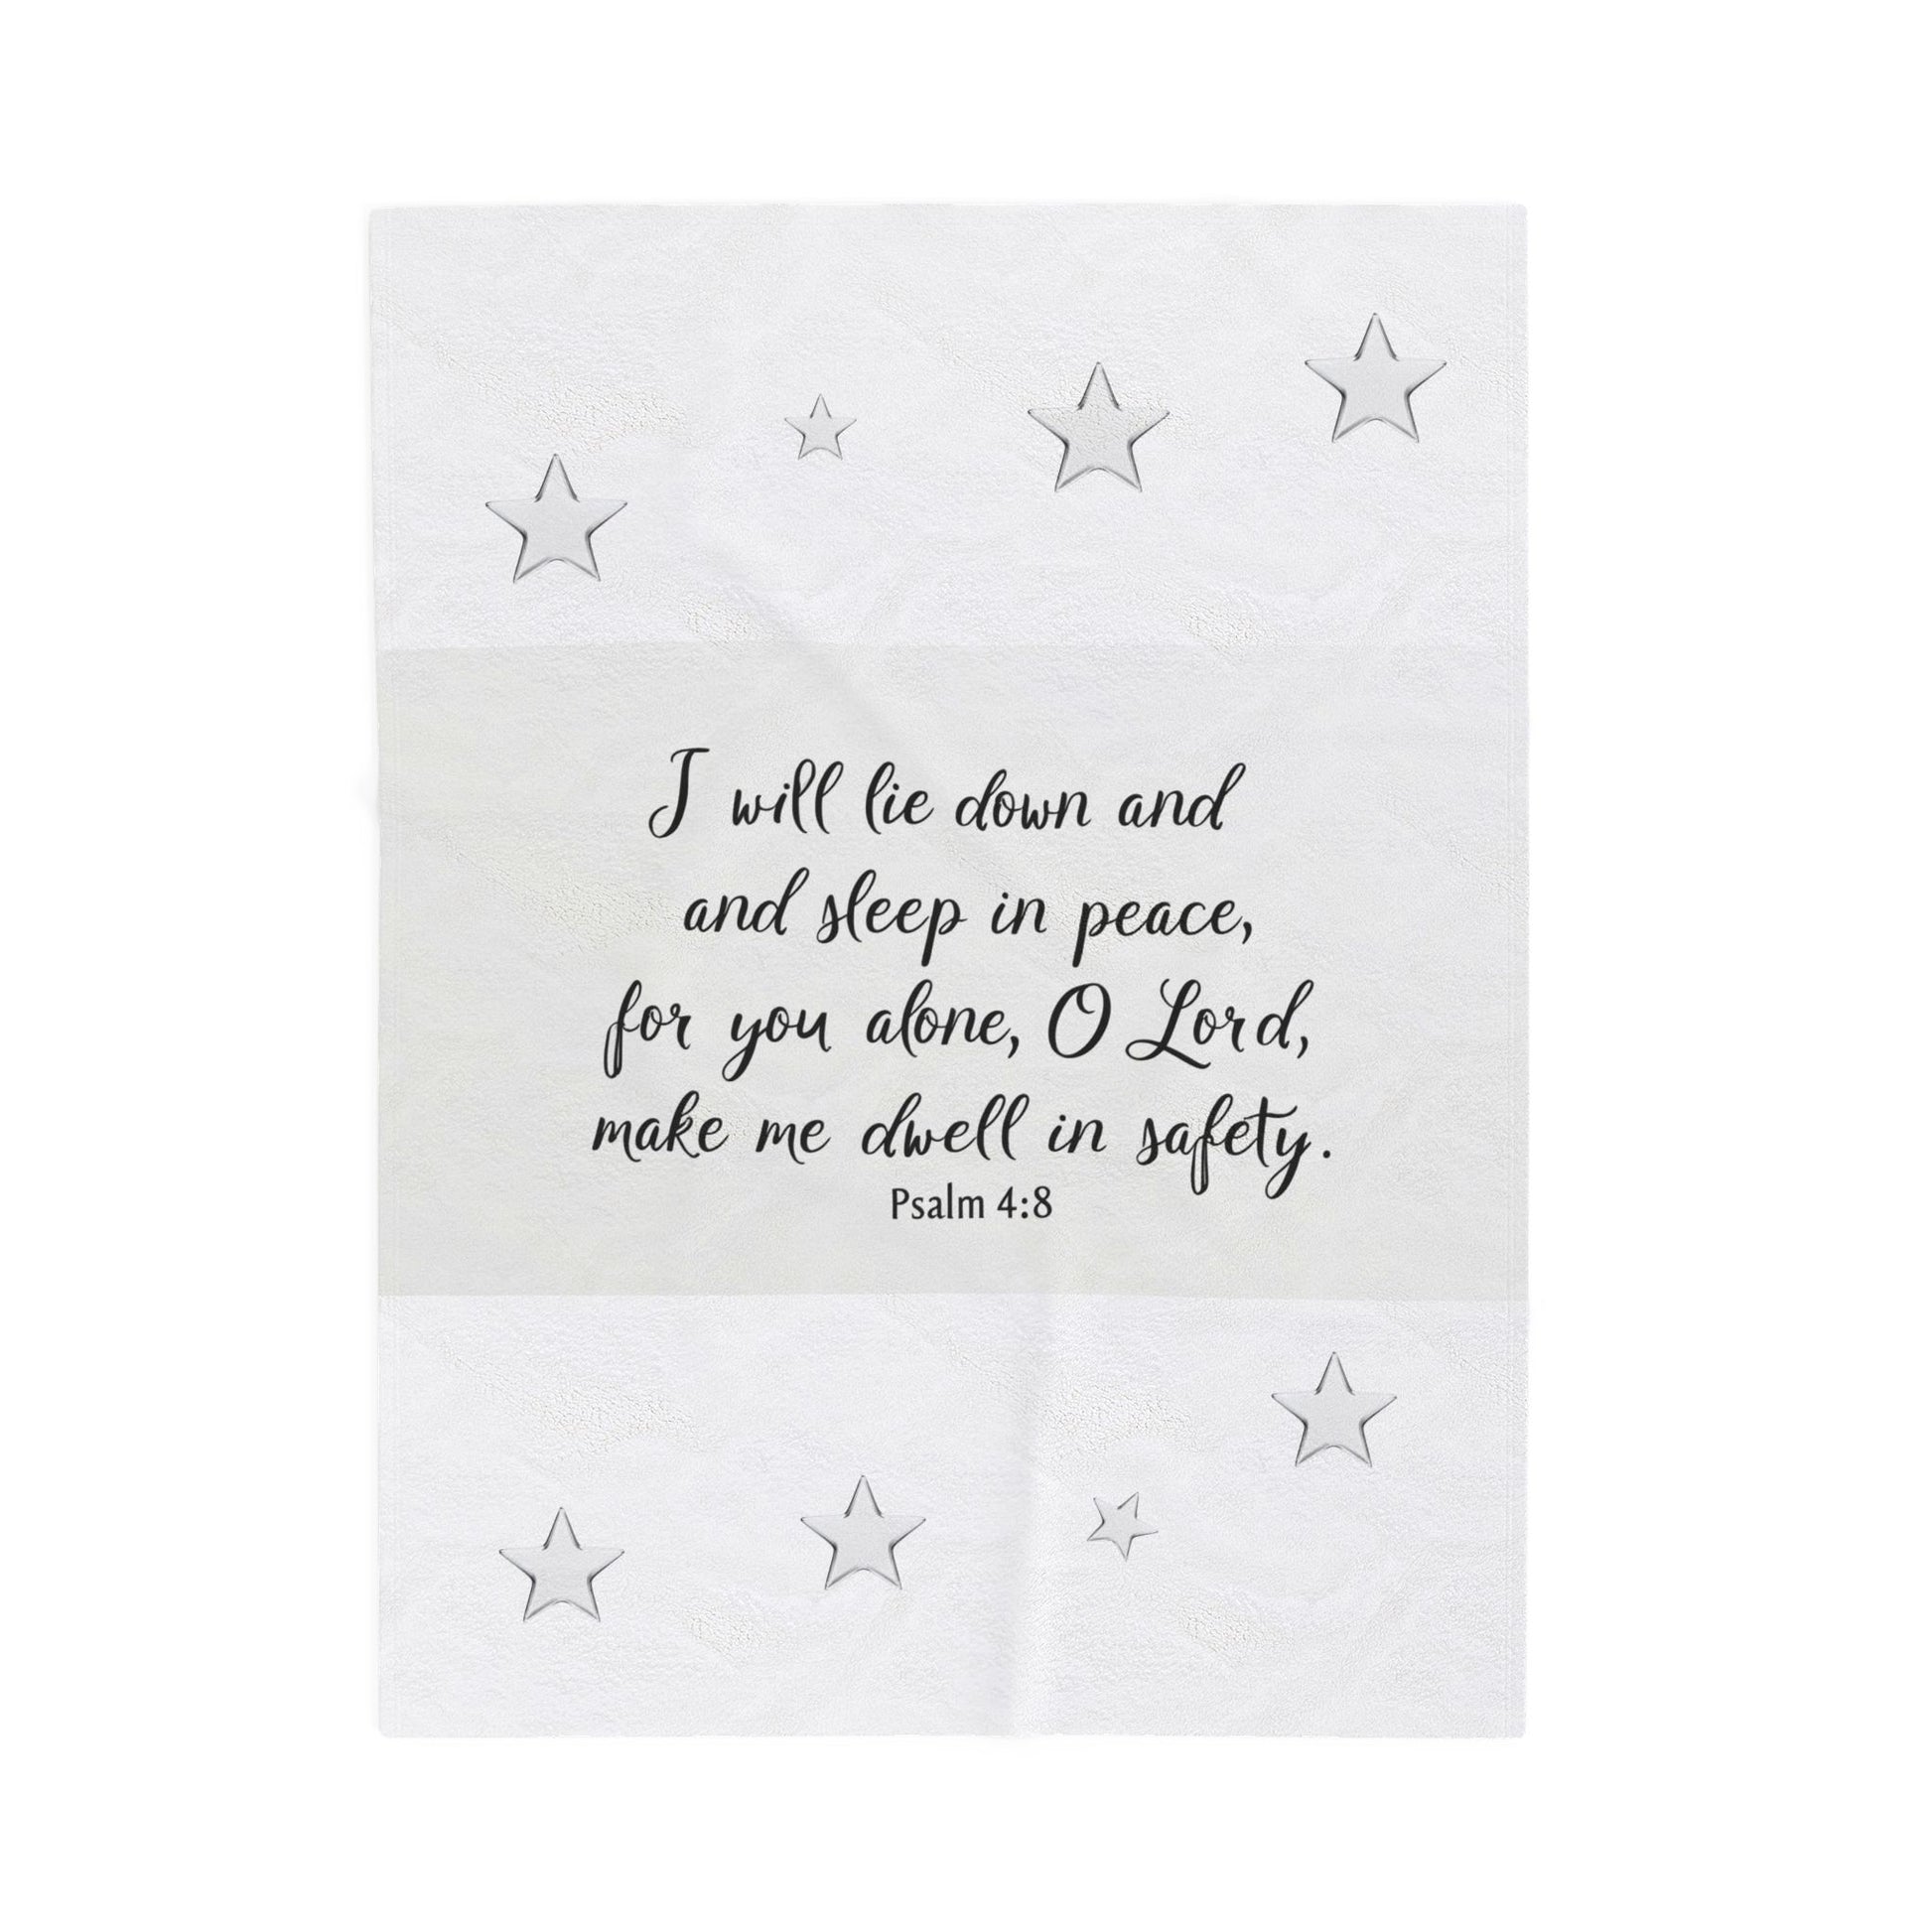 I will lie down and
and sleep in peace,
for you alone, O Lord,
make me dwell in safety.
Psalm 4:8